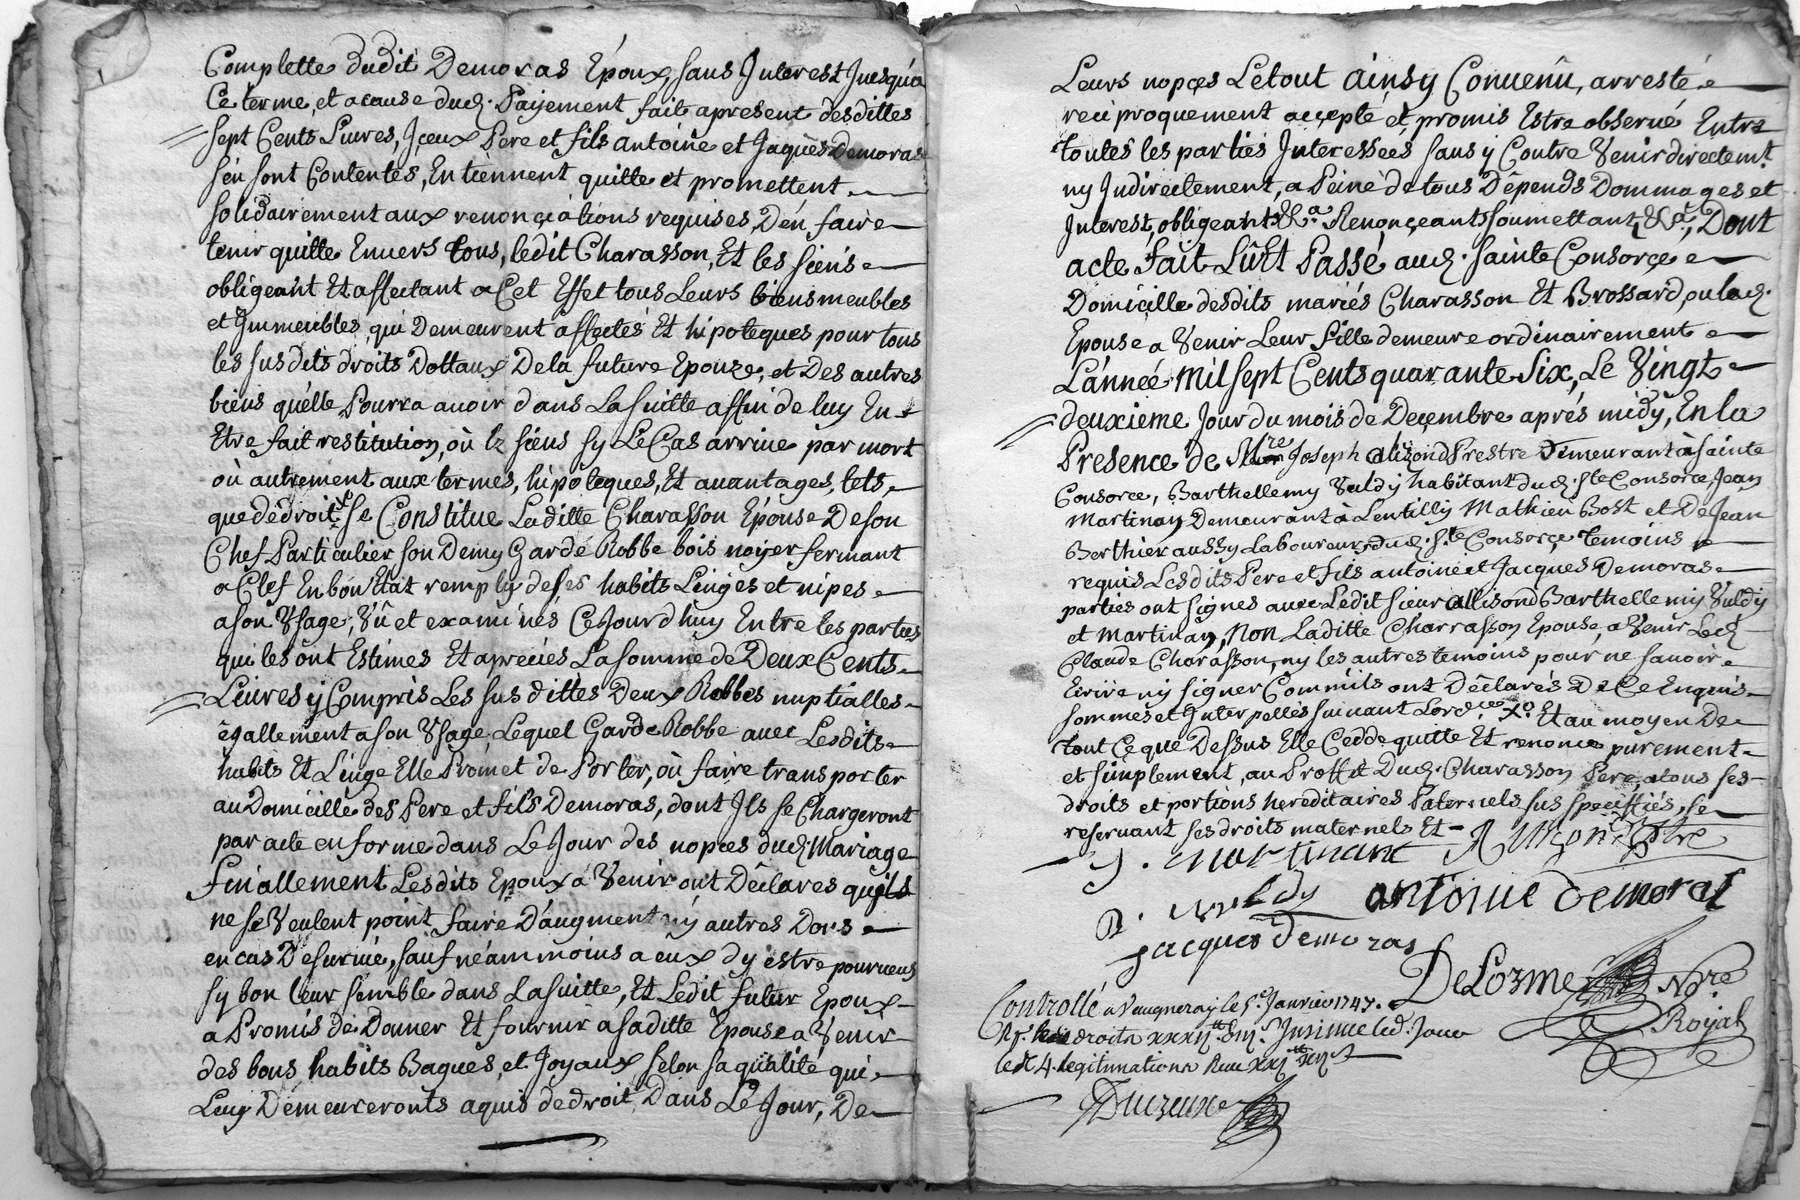 Complette dudit Demoras Époux, sans Interest Jusqu'a
Ce terme, et acause dud. Paijement fait apresent desdittes
sept Cents Livres, Iceux Pere et fils antoine et Jaques Demoras
s'en sont Contentés, En tiennent quitte et promettent
solidairement aux renonçiations requises, D'en faire
tenir quitte Envers tous, ledit Charasson, Et les siens
obligeant Et affectant a Cet Effet tous Leurs biens meubles
et Immeubles, qui Demeurent affectés Et hipoteques pour tous
les susdits droits Dottaux De la future Epouze, et Des autres
biens qu'elle Pourra avoir dans La suitte affin de luy En
Etre fait restitution, où lz siens sy Le Cas arrive par mort
où autrement aux termes, hipoteques, Et avantages, tels
que de droit, se Constitue Laditte Charasson Épouse De son
Chef Particulier son Demy Garde Robbe bois noyer fermant
a Clef En bon Etat remply de ses habits Linges et nipes
a son Usage, Vû et examinés Cejourd'huy Entre les parties
qui les ont Estimés Et apreciés La somme de Deux Cents
Livres y Compris Les susdittes Deux Robbes nuptialles
égallement a son Usage, Lequel Garde Robbe avec Lesdits
habits Et Linge Elle Promet de Porter, où faire transporter
au Domicille des Pere et fils Demoras, dont Ils se Chargeront
par acte en forme dans Le Jour des nopces dud. Mariage
Finallement Lesdits Epoux a Venir ont Déclarés qu'ils
ne se Veulent point faire D'augment ny autres Dons
en cas De survie, sauf néammoins a eux d'y estre pourveus
sy bon leur semble dans La suitte, Et Ledit futur Epoux
a Promis de Donner Et fournir a saditte Epouse a Venir
des bons habits Bagues, et Joyaux selon sa qualité qui
Luy Demeureronts aquis de droit, Dans Le Jour, De
Leurs nopçes Le tout ainsy Convenû, arresté
reciproquement acçepté et promis Estre observé Entre
toutes les parties Interessées sans y Contre Venir directemt.
ny Indirectement, a Peine de tous Dépends Dommages et
Interest, obligeant &a. Renonçeant soumettant, &a., Dont
acte Fait Lû Et Passé aud. sainte Consorçe
Domicille desdits mariés Charasson Et Brossard, ou lad.
Epouse a Venir Leur Fille demeure ordinairement
L'année mil sept Cents quarante Six, Le Vingt
deuxieme Jour du mois de Deçembre aprés midy, En la
Presence de Mre Joseph alizond Prestre Demeurant à sainte
Consorce, Barthellemy Vuldy habitant dud. ste Consorce Jean
Martinay Demeurant à Lentilly Mathieu Bost et De Jean
Berthier aussy Laboureurs dud. Ste Consorçe, temoins
requis Lesdits Pere et fils antoine et Jacques Demoras
parties ont signés avec Ledit sieur allisond Barthellemy Vuldy
et Martinay, Non Laditte Charrasson Epouse, a Venir Led.
Claude Charasson, ny les autres temoins pour ne savoir
Ecrire ny signer Comm'ils ont Déclarés De Ce Enquis
sommés et Interpellés suivant Lord.ces Xo. Et au moyen De
tout Ce que Dessus Elle Cedde quitte Et renonce purement
et simplement, au Proffit Dud. Charasson Pere, a tous ses
droits et portions hereditaires Paternels sus speciffiés, se
reservant ses droits maternels Et
J. martinant Alizon Ptre
B. vuldy antoine demoras
jacques demoras
DeLorme Nre
Royal
Controllé a Vaugneray le 5e. Janvier 1747.
droits Insinué led. Jour